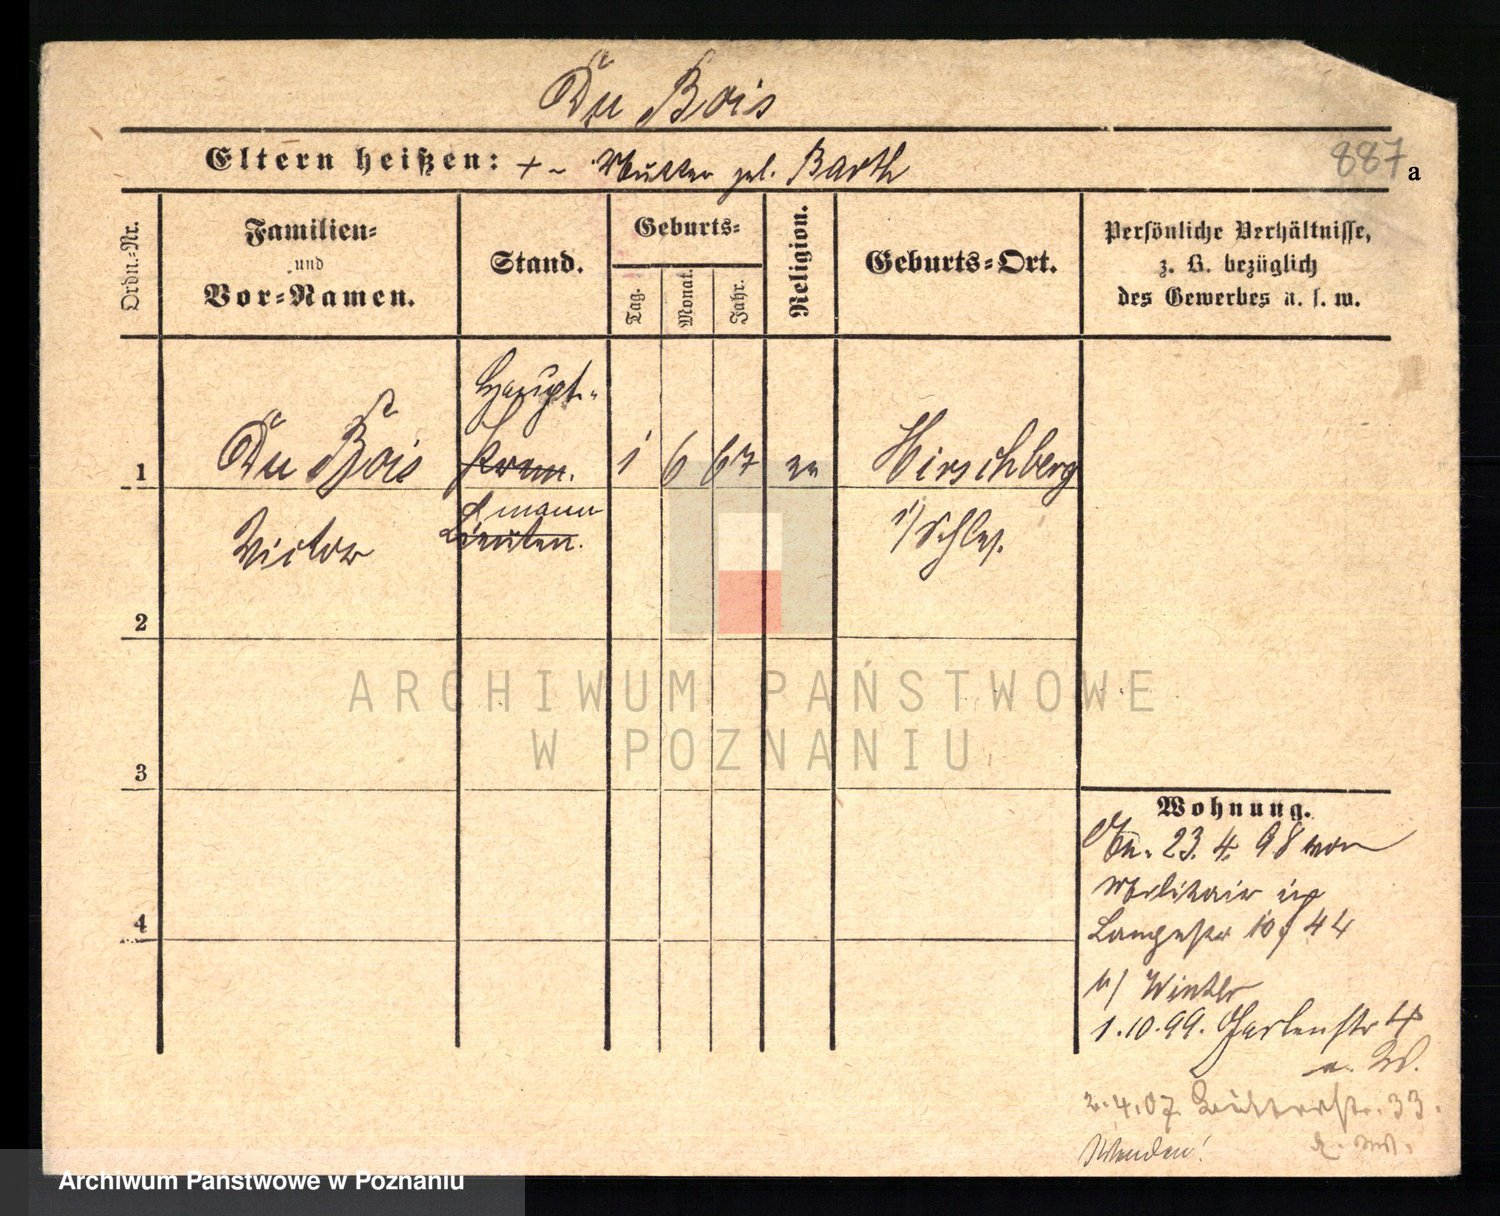 Du Bois
Eltern heißen: + – Mutter geb. Barth
887 a
Ordn.-Nr.
Familien-
und
Vor-Namen.
Stand.
Geburts-
Tag.
Monat.
Jahr.
Religion.
Geburts-Ort.
Persönliche Verhältnisse,
z. B. bezüglich
des Gewerbes u. s. w.
Haupt-
1 Du Bois Prem. 1 6 67 ev Hirschberg
mann
Victor Lieuten. i/Schles.
2
3
4
ARCHIWUM PAŃSTWOWE
W POZNANIU
Wohnung.
23. 4. 98 von
Militair in
Langestr 10 44
b/ Winkler
1.10.99. Gartenstr 4
a. W.
2.4.07. 33.
Wenden!
Archiwum Państwowe w Poznaniu